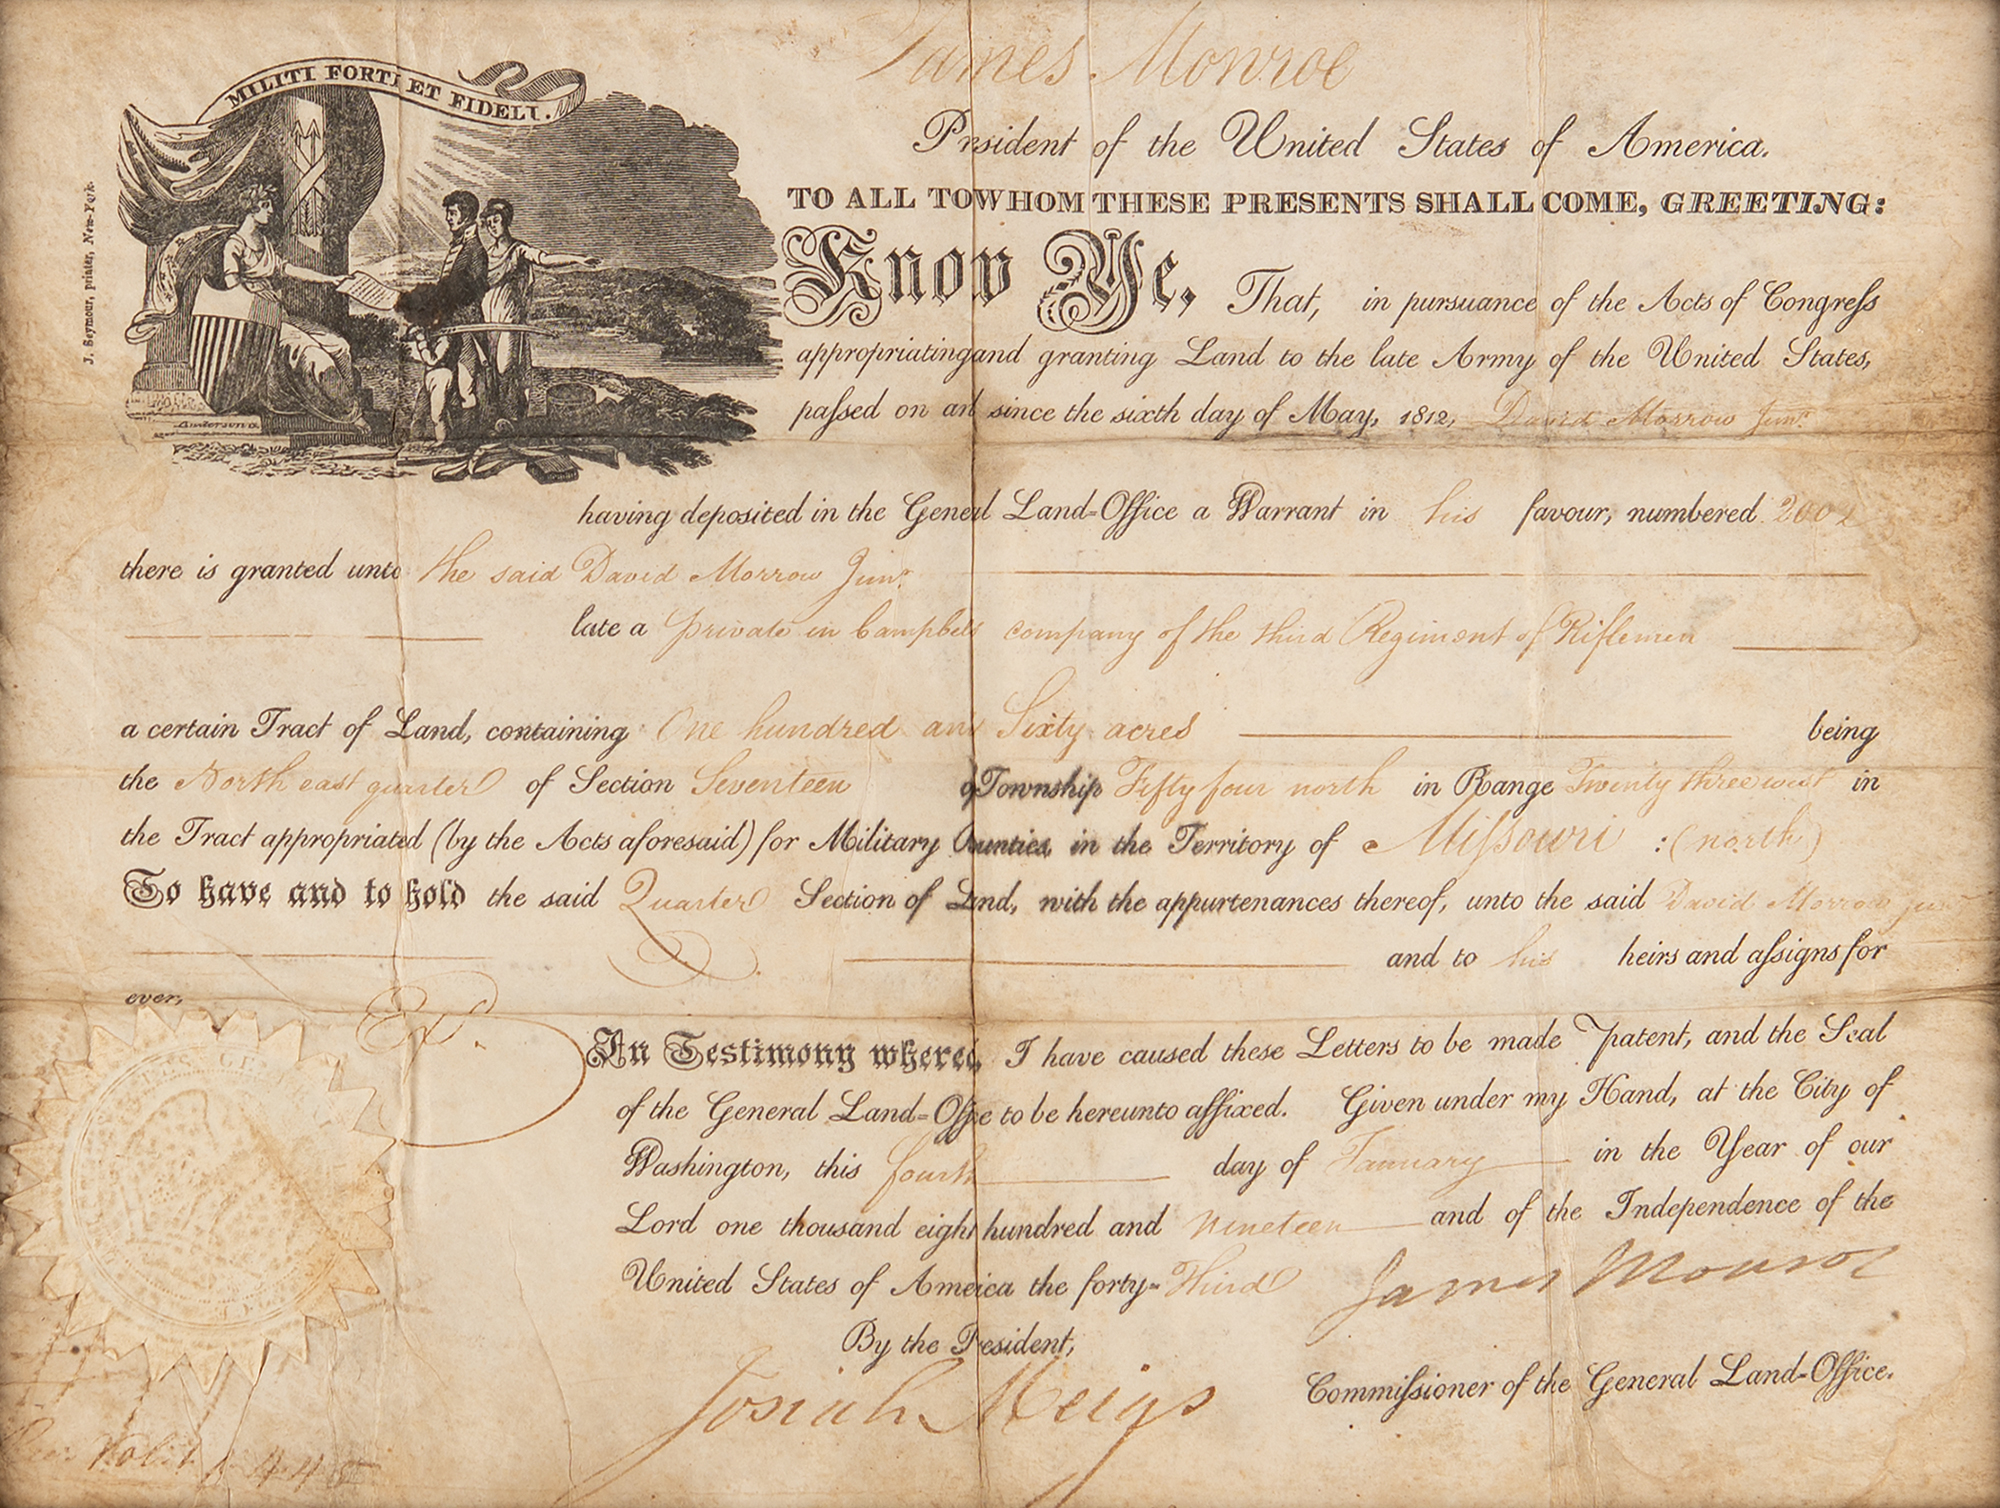 James Monroe
MILITI FORTI ET FIDELI.
President of the United States of America.
J. Seymour, printer, New-York.
TO ALL TO WHOM THESE PRESENTS SHALL COME, GREETING:
Know Ye, That, in pursuance of the Acts of Congress
appropriating and granting Land to the late Army of the United States,
passed on and since the sixth day of May, 1812, David Morrow Junr.
Anderson
having deposited in the General Land-Office a Warrant in his favour, numbered 2002
there is granted unto the said David Morrow Junr.
late a private in Campbels company of the third Regiment of Riflemen
a certain Tract of Land, containing One hundred and Sixty acres being
the North east quarter of Section Seventeen of Township Fifty four north in Range Twenty three west in
the Tract appropriated (by the Acts aforesaid) for Military Bounties, in the Territory of Missouri : (north)
To have and to hold the said Quarter Section of Land, with the appurtenances thereof, unto the said David Morrow Junr
and to his heirs and assigns for
ever,
In Testimony whereof, I have caused these Letters to be made Patent, and the Seal
of the General Land-Office to be hereunto affixed. Given under my Hand, at the City of
Washington, this fourth day of January in the Year of our
Lord one thousand eight hundred and nineteen and of the Independence of the
United States of America the forty-Third
James Monroe
By the President,
Josiah Meigs
Commissioner of the General Land-Office.